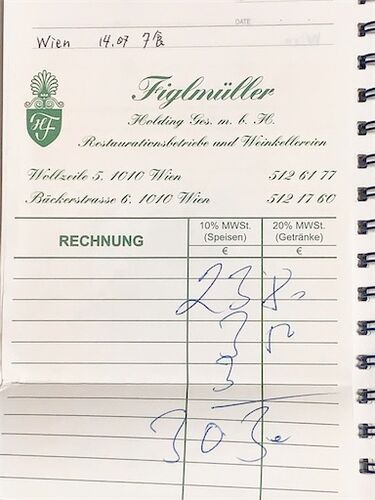 DATE
Wien 14.07
Figlmüller
Holding Ges. m. b. H.
Restaurationsbetriebe und Weinkellereien
Wollzeile 5, 1010 Wien 512 61 77
Bäckerstrasse 6, 1010 Wien 512 17 60
RECHNUNG
10% MWSt. (Speisen) €
20% MWSt. (Getränke) €
23 80
3 50
3
30 30